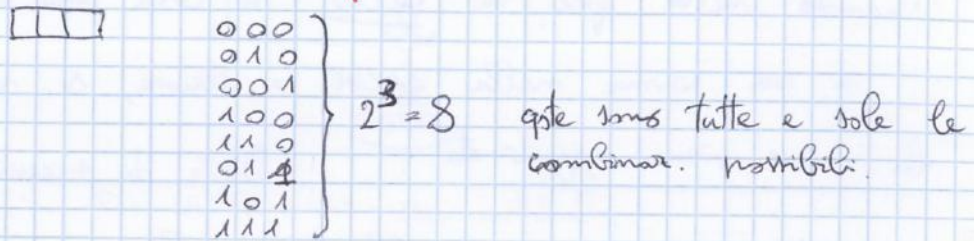 000
010
001
100
110
011
101
111
2³=8 qste sono tutte e sole le
combinaz. possibili.